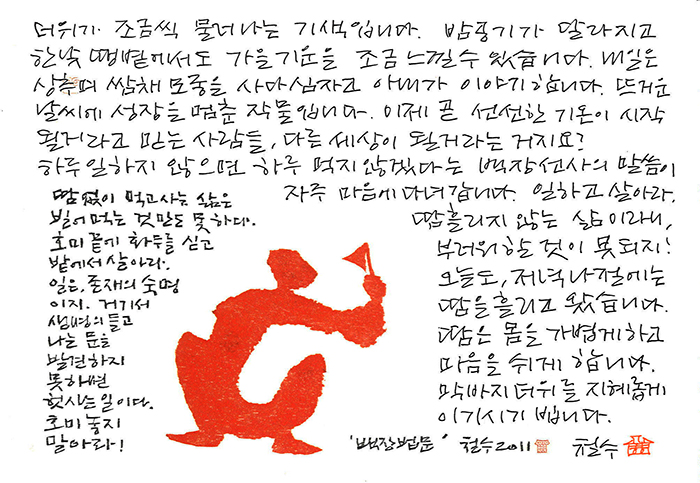 더위가 조금씩 물러나는 기색입니다. 밤공기가 달라지고
한낮 땡볕에서도 가을기운을 조금 느낄수 있습니다. 내일은
상추며 쌈채 모종을 사다 심자고 아내가 이야기 합니다. 뜨거운
날씨에 성장을 멈춘 작물입니다. 이제 곧 선선한 기온이 시작
될거라고 믿는 사람들, 다른 세상이 될거라는 거지요?
하루 일하지 않으면 하루 먹지 않겠다는 백장선사의 말씀이
자주 마음에 다녀갑니다. 일하고 살아라.
땀흘리지 않는 삶이라니,
부러워할 것이 못되지!
오늘도, 저녁나절에는
땀을 흘리고 왔습니다.
땀은 몸을 가볍게 하고
마음을 쉬게 합니다.
막바지 더위를 지혜롭게
이기시기 빕니다.
철수
땀 없이 먹고 사는 삶은
빌어먹는 것만도 못하다.
호미 끝에 화두를 싣고
밭에서 살아라.
일은, 존재의 숙명
이지. 거기서
생명의 들고
나는 문을
발견하지
못하면
헛사는 일이다.
호미 놓지
말아라!
'백장법문' 철수 2011